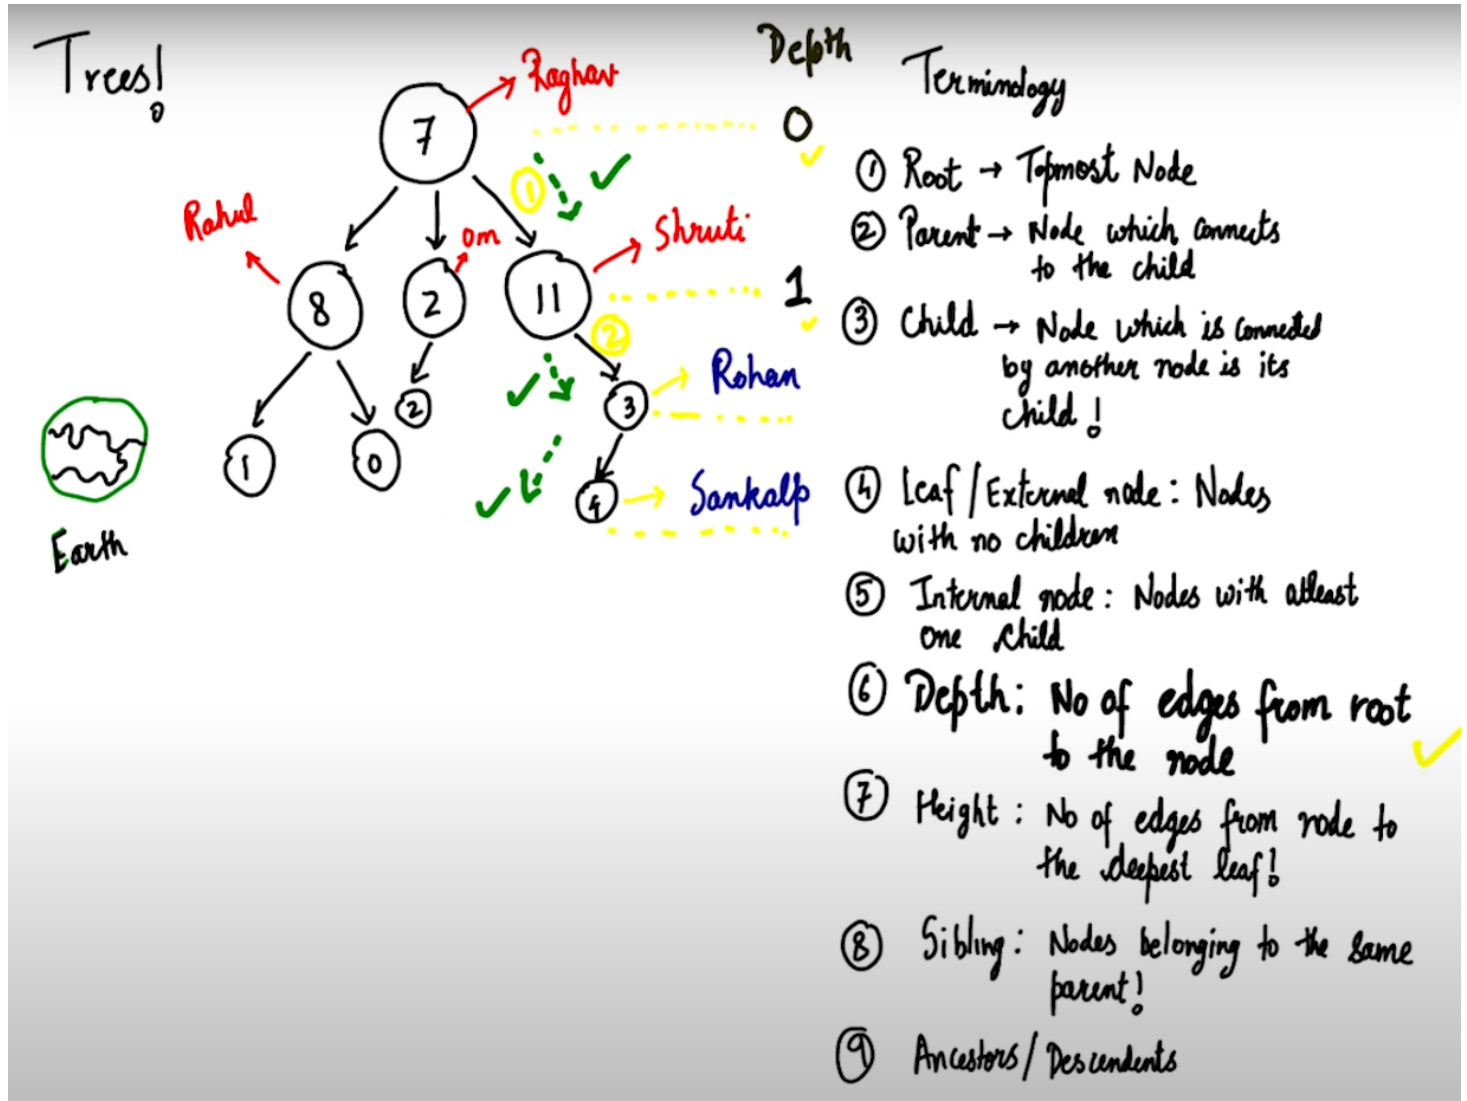 Trees!
Depth
Raghav
7
0
1
Rahul
om
Shruti
8
2
11
1
2
Rohan
2
3
1
0
Sankalp
4
Earth
Terminology
1 Root → Topmost Node
2 Parent → Node which connects
to the child
3 Child → Node which is connected
by another node is its
child!
4 Leaf / External node : Nodes
with no children
5 Internal node : Nodes with atleast
one child
6 Depth : No of edges from root
to the node
7 Height : No of edges from node to
the deepest leaf!
8 Sibling : Nodes belonging to the same
parent!
9 Ancestors / Descendents